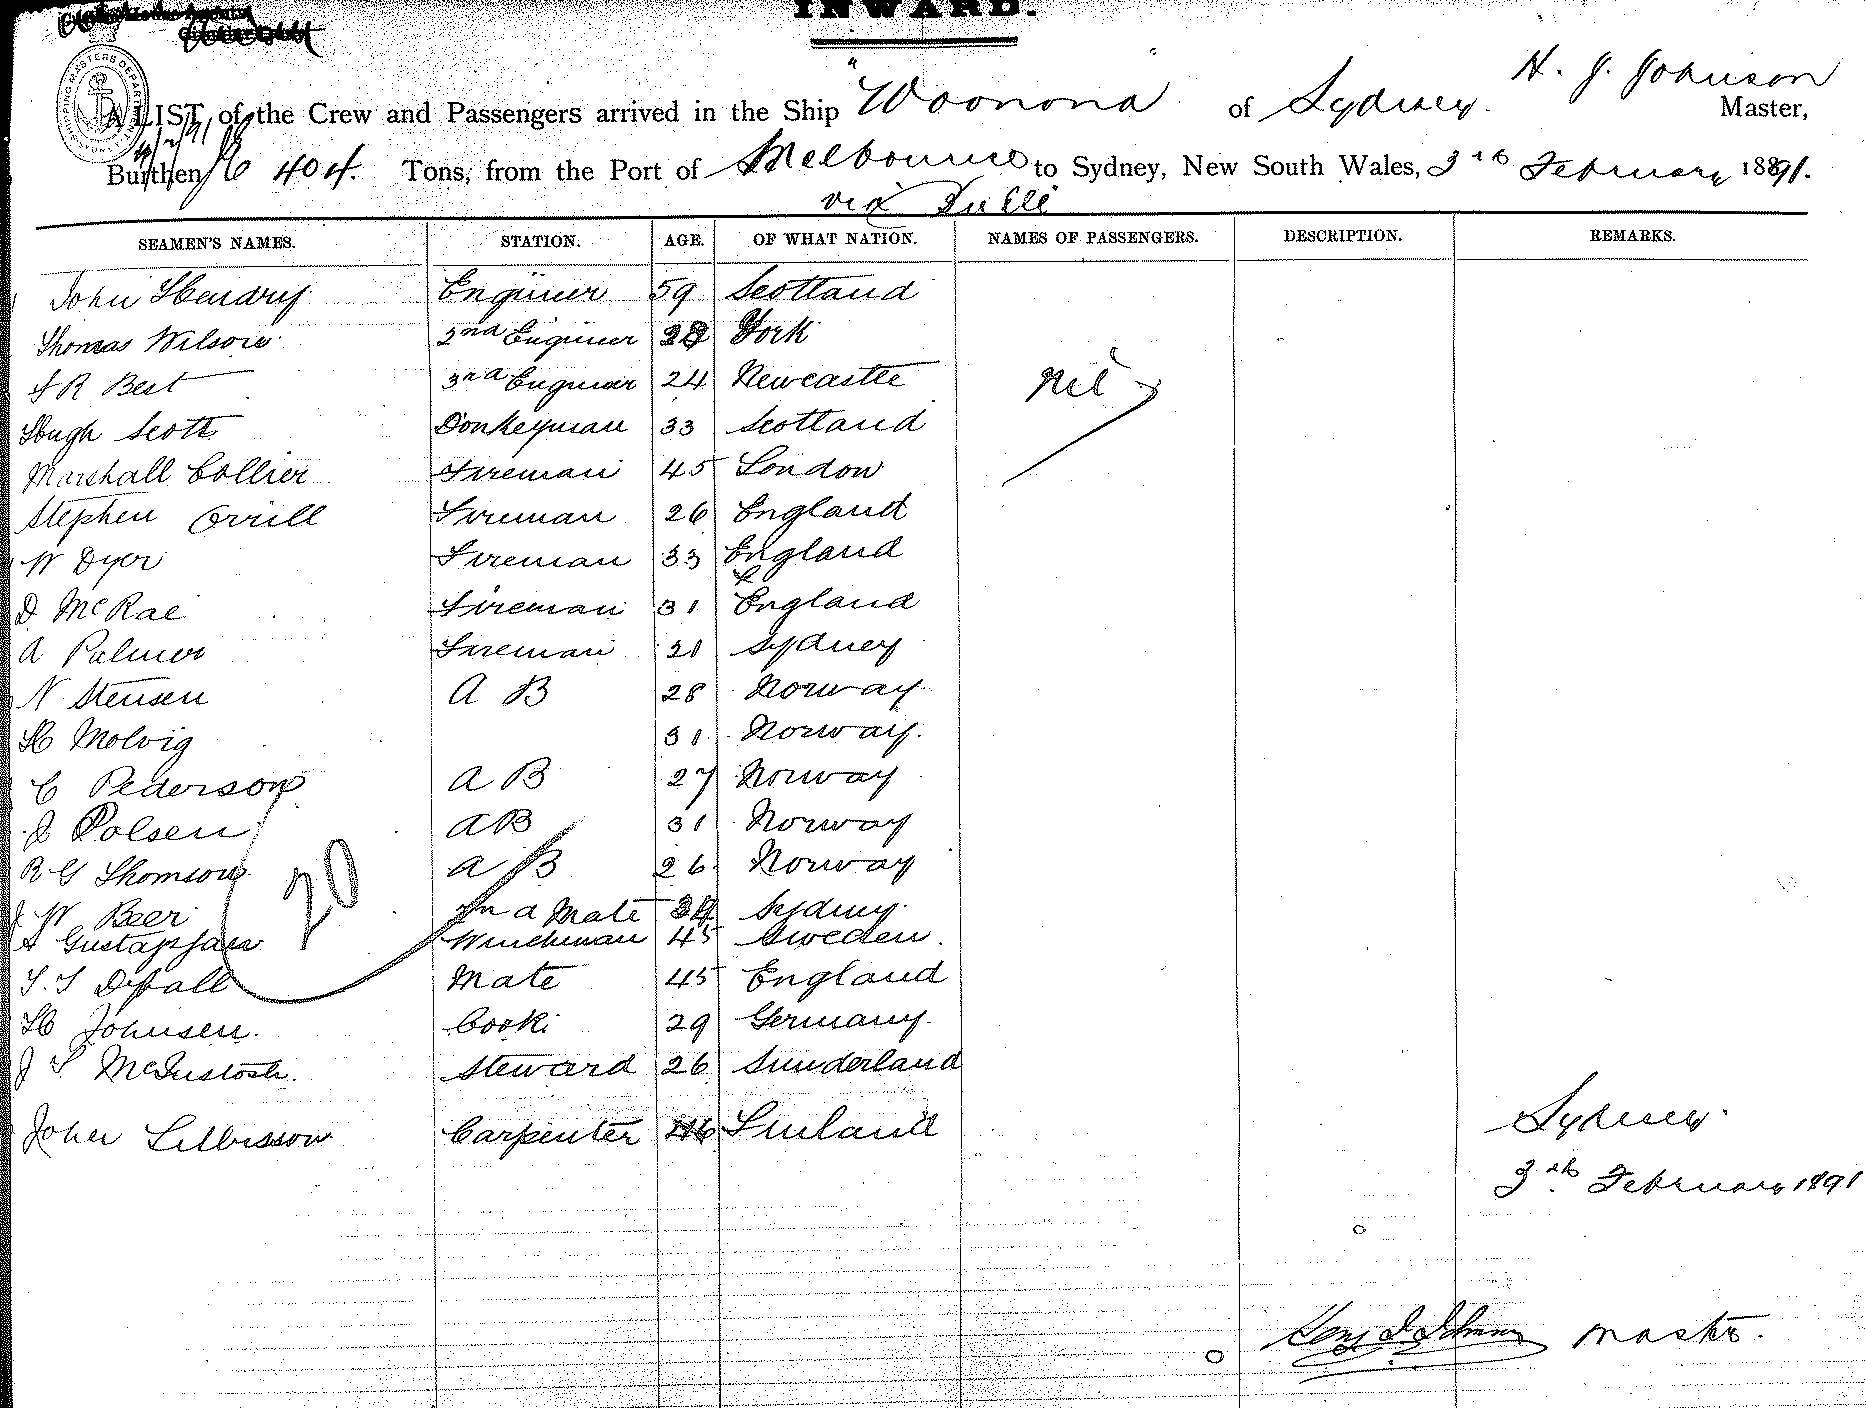 INWARD.
H. J. Johnson
A LIST of the Crew and Passengers arrived in the Ship "Woonona" of Sydney. Master,
Burthen 404. Tons, from the Port of Melbourne to Sydney, New South Wales, 3rd February 1891.
via Bulli
SEAMEN'S NAMES. STATION. AGE. OF WHAT NATION. NAMES OF PASSENGERS. DESCRIPTION. REMARKS.
John Hendry Engineer 59 Scotland
Thomas Wilson 2nd Engineer York
R Best 3rd Engineer 24 Newcastle
Nil
Hugh Scott Donkeyman 33 Scotland
Marshall Collier Fireman 45 London
Stephen Orrill Fireman 26 England
W Dyer Fireman 33 England
D McRae Fireman 31 England
A Palmer Fireman 21 Sydney
N Stensen A B 28 Norway
H Molvig 31 Norway.
C Pederson A B 27 Norway
J Polsen A B 31 Norway
R G Thomson A B 26 Norway
20
J W Beer 2nd Mate Sydney
A Gustafsson Winchman 45 Sweden.
Mate 45 England
H Johnsen. Cook 29 Germany.
J McIntosh. Steward 26 Sunderland
John Carpenter Finland
Sydney.
3rd February 1891
Master.